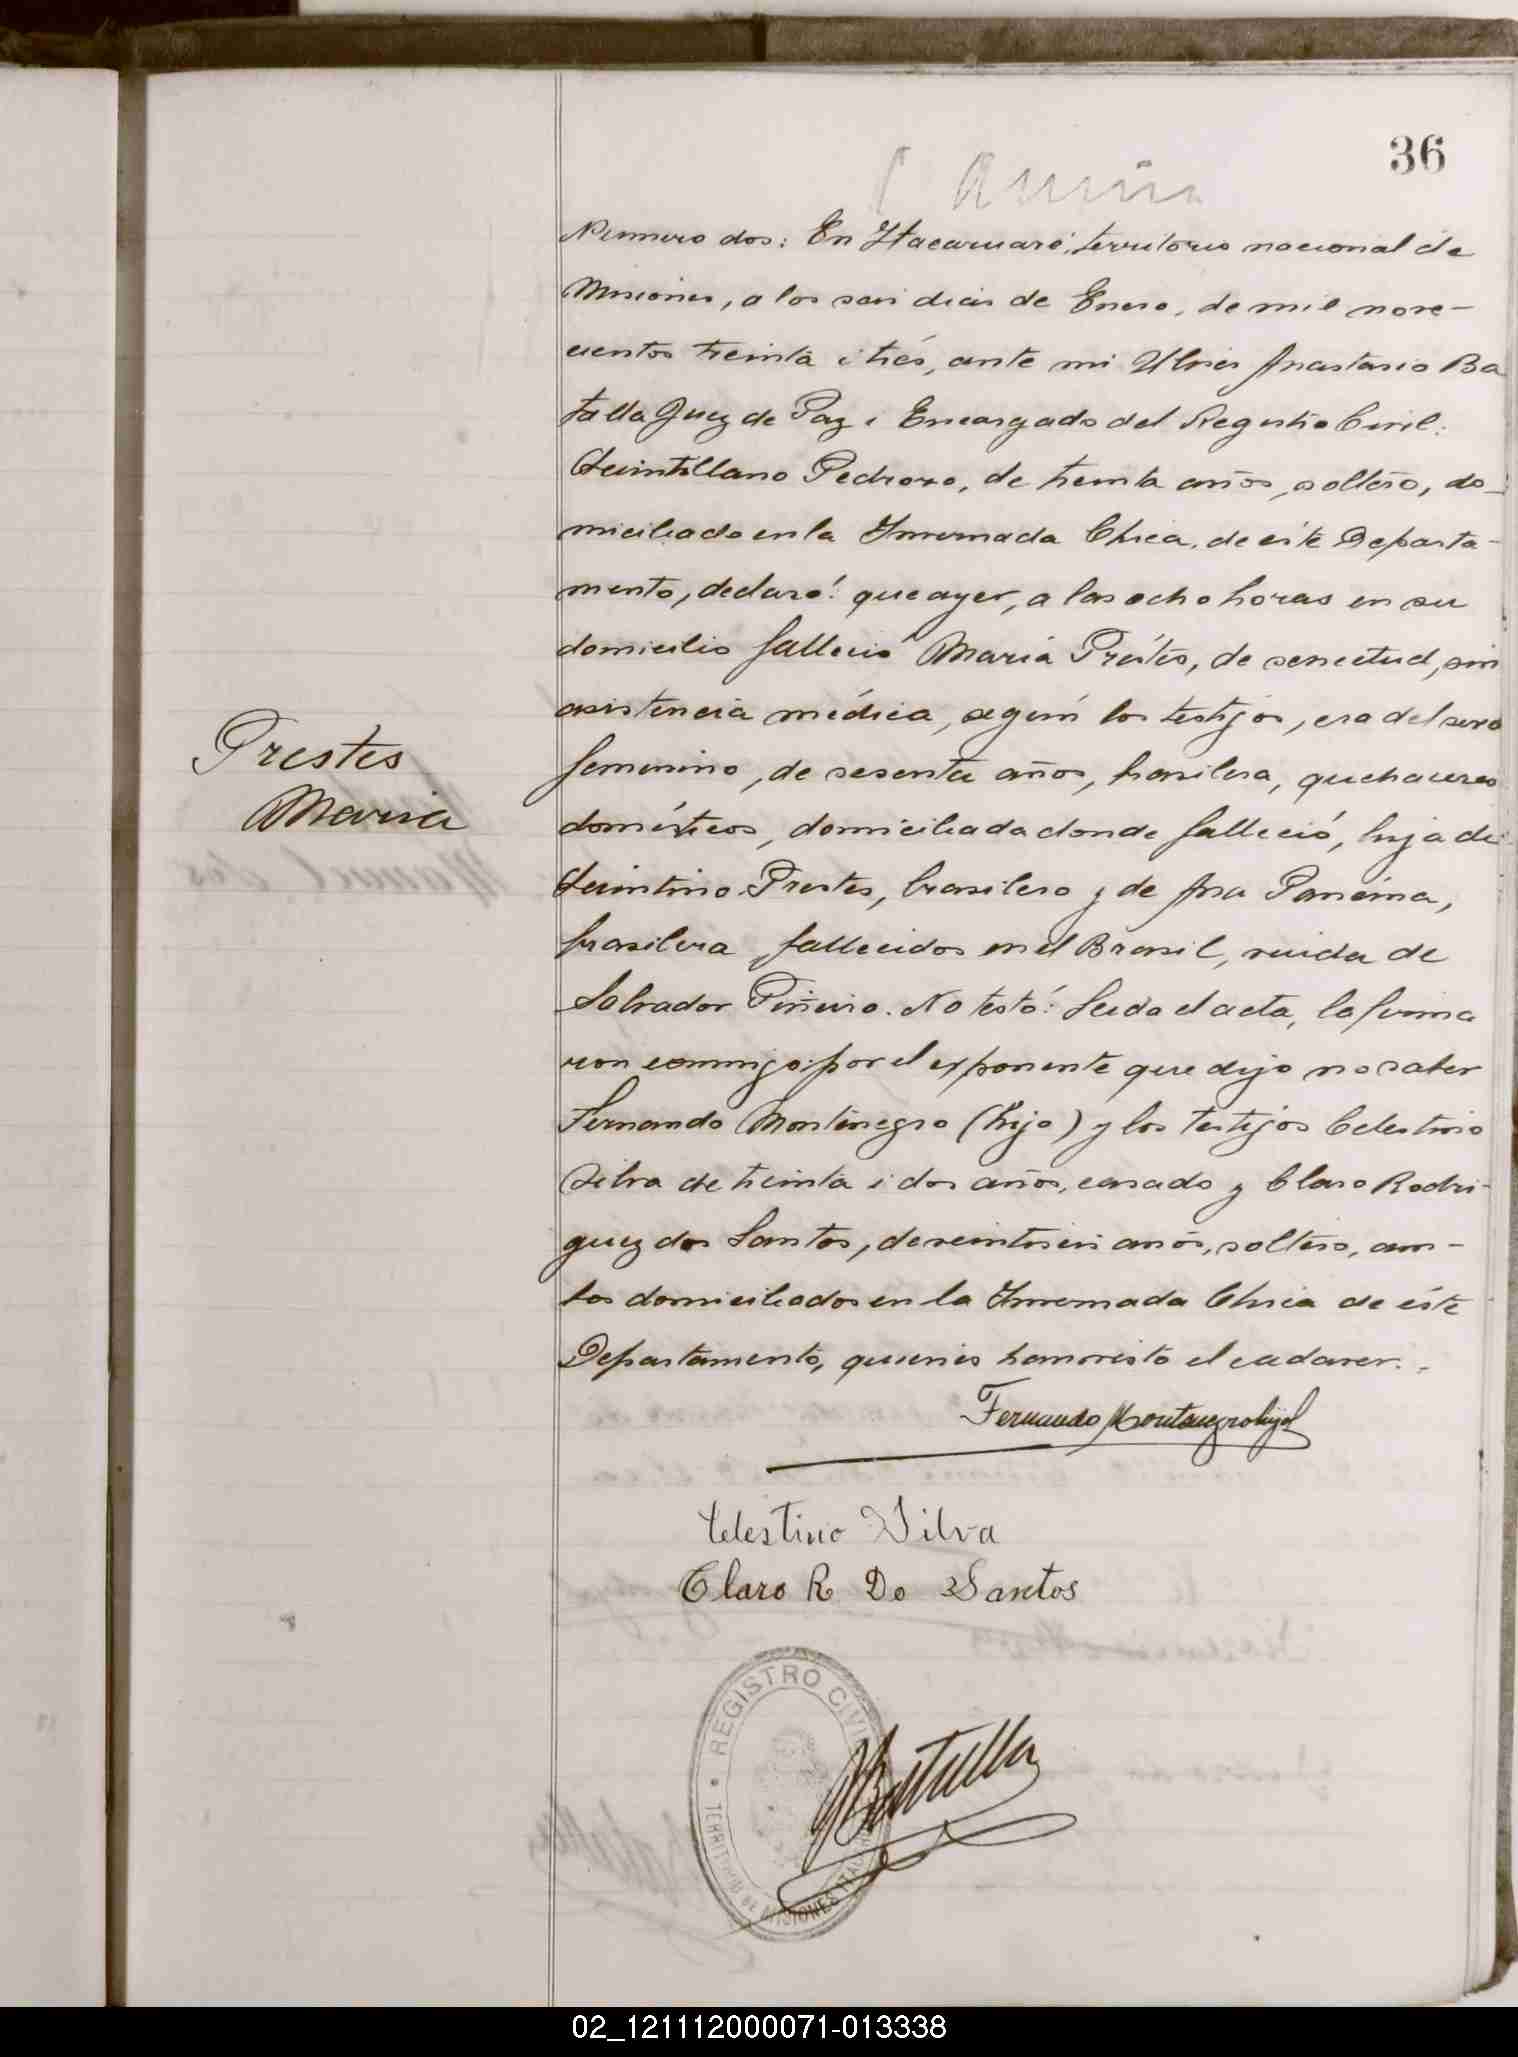 36
Número dos: En Itacaruaré, territorio nacional de
Misiones, a los seis dias de Enero, de mil nove-
cientos treinta i trés, ante mi Ulises Anastasio Ba
talla Juez de Paz i Encargado del Registro Civil:
Quintillano Pedrozo, de treinta años, soltero, do-
miciliado en la Invernada Chica, de éste Departa-
mento, declaró: que ayer, a las ocho horas en su
domicilio falleció María Préstes, de senectud, sin
asistencia médica, según los testijos, era del sexo
femenino, de sesenta años, brasilera, quehaceres
domésticos, domiciliada donde falleció, hija de
Prestes
Maria
Quintino Prestes, brasilero y de Ana
brasilera, fallecidos en el Brasil, viuda de
Salvador Piñeiro. No testó: Leida el acta, la firma
ron conmigo: por el exponente que dijo no saber
Fernando Montenegro (hijo) y los testijos Celestino
Silva de treinta i dos años, casado y Claro Rodri-
guez dos Santos, de veintiseis anõs, soltero, am-
bos domiciliados en la Invernada Chica de éste
Departamento, quienes han visto el cadaver.
Fernando Montenegro hijo
Celestino Silva
Claro R Do Santos
REGISTRO CIVIL
TERRITORIO DE MISIONES
Batalla
02_121112000071-013338